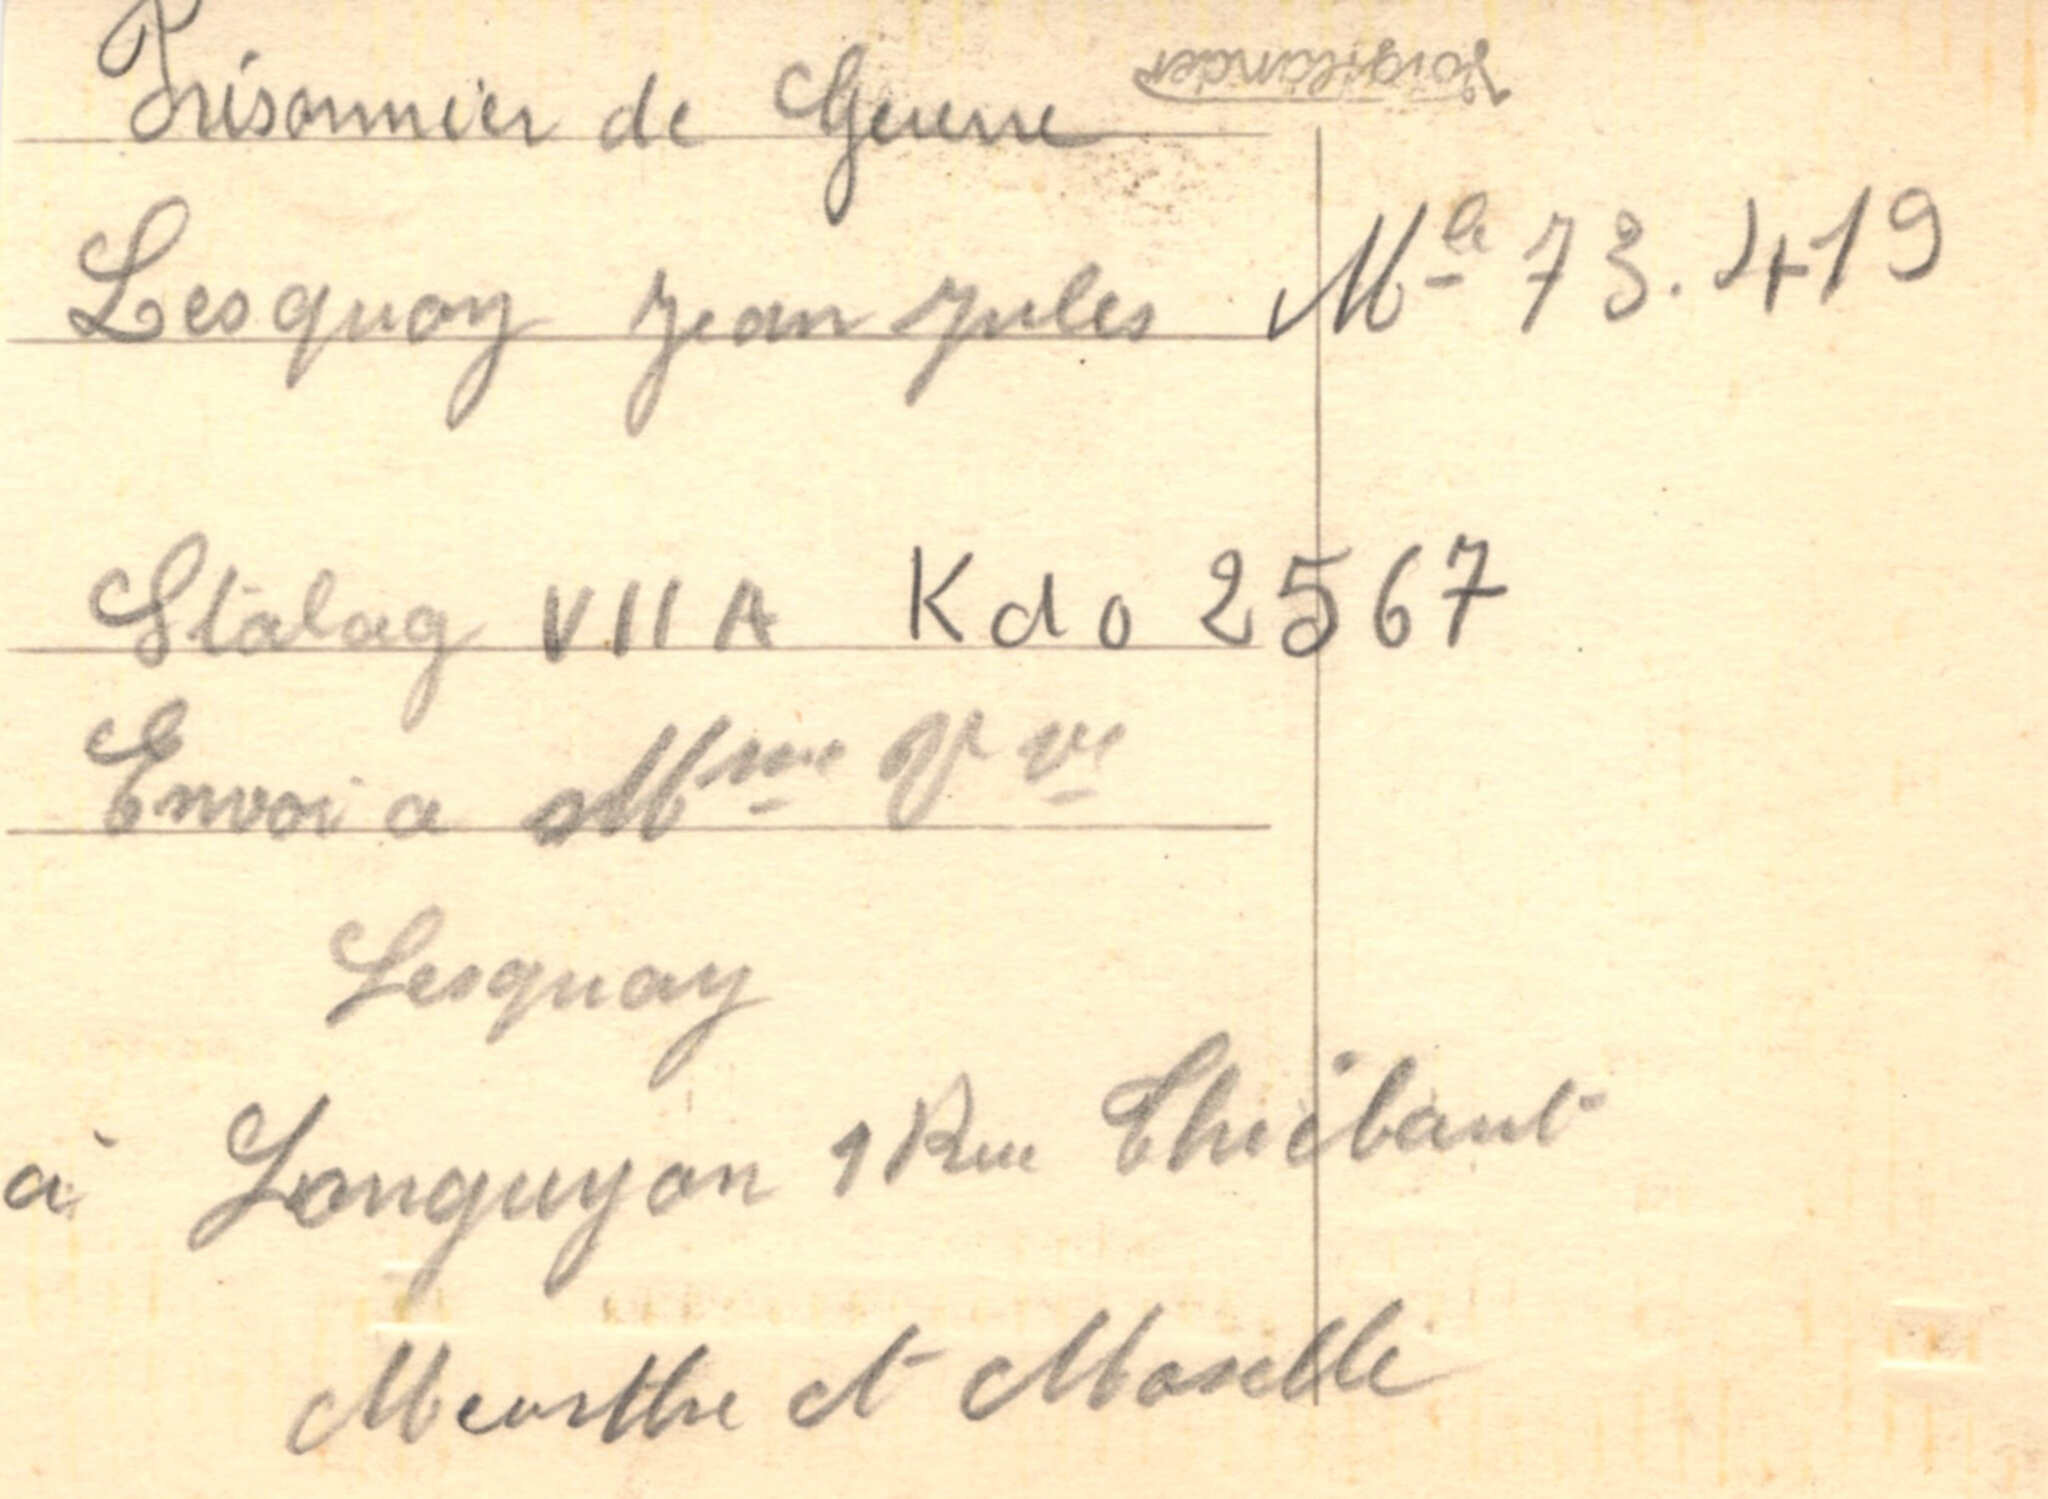 Prisonnier de Guerre
Lesquoy Jean Jules Mle 73.419
Stalag VII A Kdo 2567
Envoi a Mme Vve
Lesquoy
à Longuyon 1 Rue Thiébaut
Meurthe et Moselle
Voigtländer